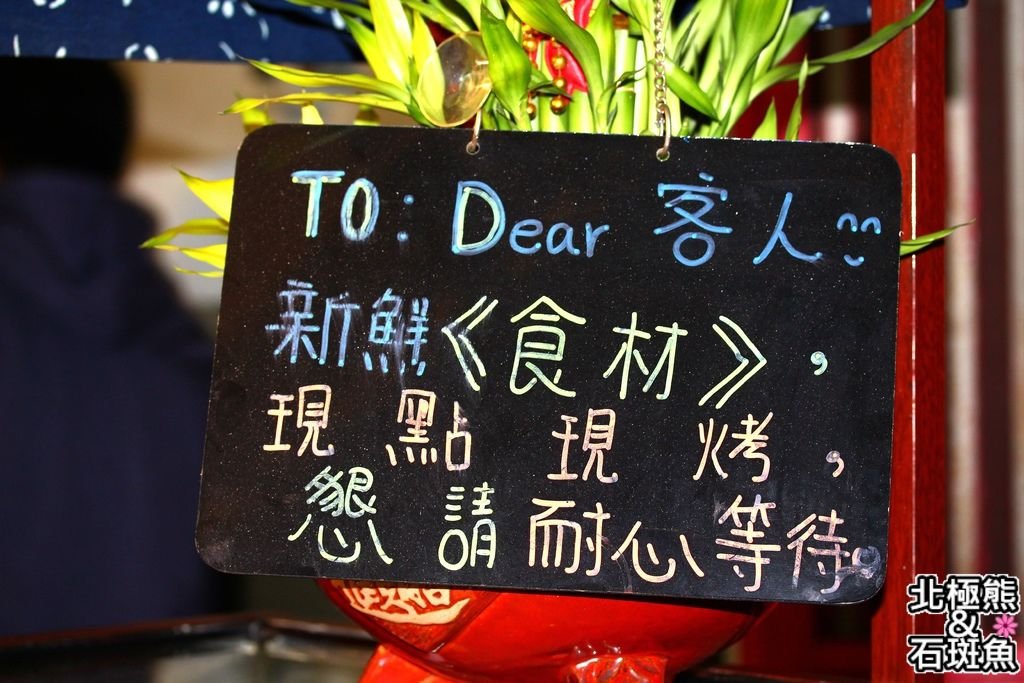 TO: Dear 客人
新鮮《食材》,
現點現烤,
懇請耐心等待。
北極熊
&
石斑魚